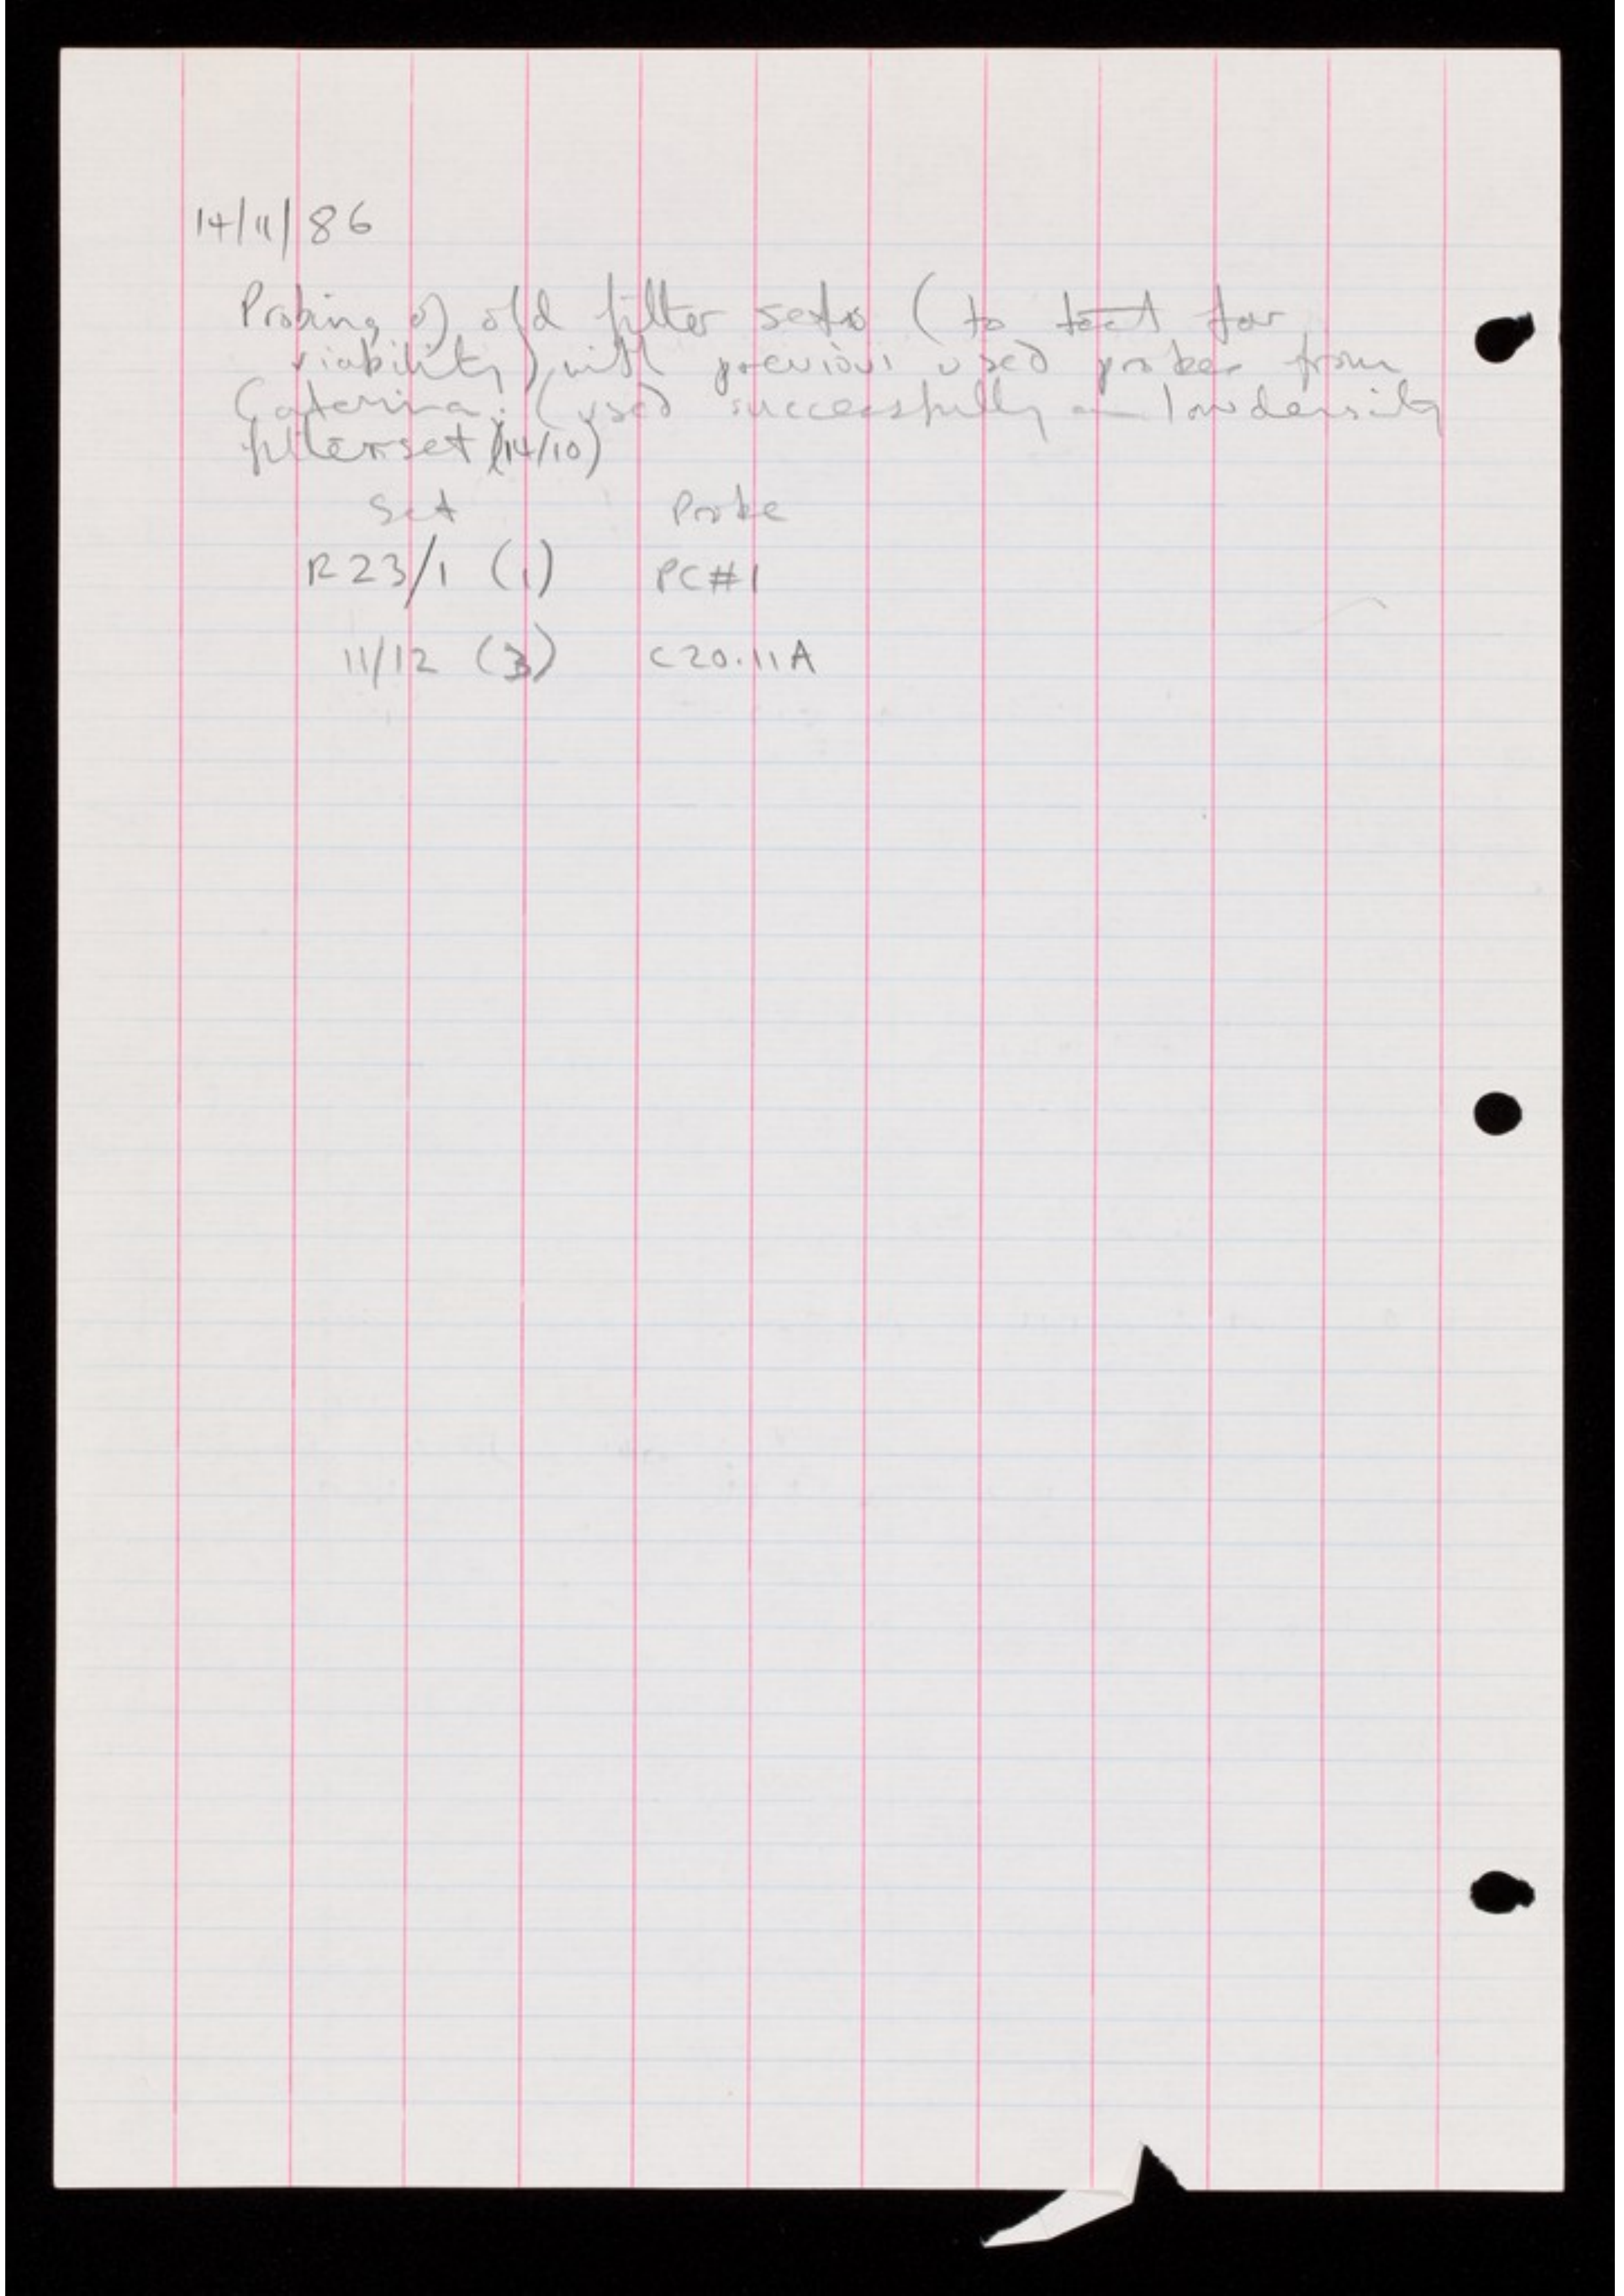 14/11/86
Probing of old filter sets (to test for
viability) with previous used probes from
Caterina. (used successfully on low density
filterset (14/10)
Set Probe
R23/1 (1) PC#1
11/12 (3) C20.11A